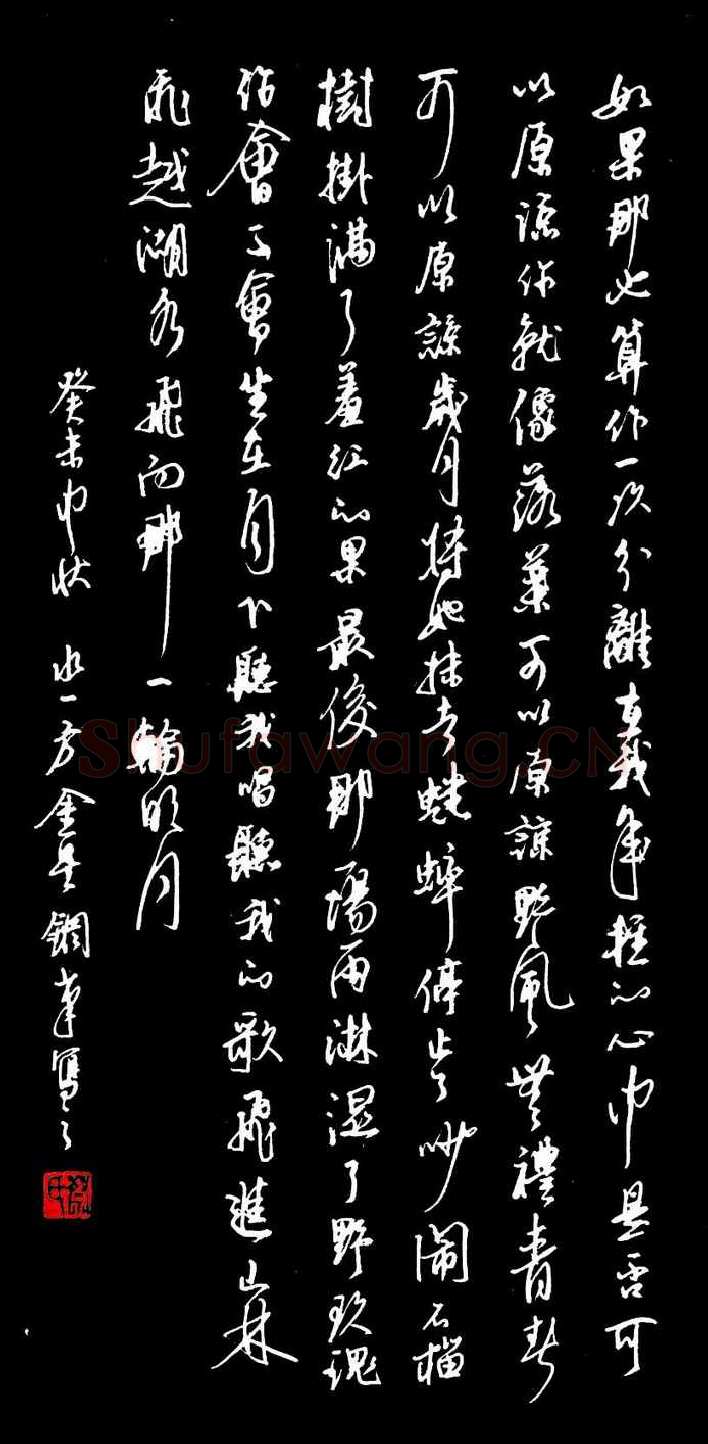 如果那也算作一次分離在我年輕的心中是否可
以原諒你就像落葉可以原諒野風無禮青春
可以原諒歲月將她抹去蟋蟀停止了吵闹石榴
樹掛滿了羞红的果最後那場雨淋湿了野玫瑰
你會不會坐在月下聽我唱聽我的歌飛進山林
飛越湖水飛向那一輪明月
癸未中秋 水一方金星鋼筆寫之
Shufawang.CN